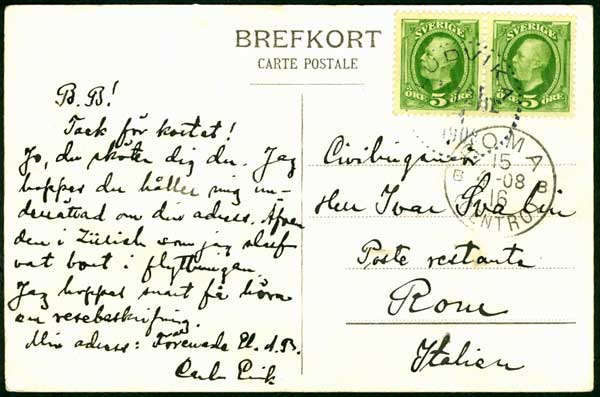 BREFKORT
CARTE POSTALE
SVERIGE SVERIGE
5 ÖRE 5 5 ÖRE 5
B. B!
Tack för kortet!
Jo, du sköter dig du. Jag
hoppas du håller mig un-
derrättad om din adress. Även
den i Zürich som jag
vat bort i flyttningen.
Jag hoppas snart få höra
en resebeskrifning.
Min adress: Förenade El. A.B.
Carl Erik
ROMA
15
-08
16
B B
CENTRO
Civilingeniör
Herr Ivar Svalin
Poste restante
Rom
Italien